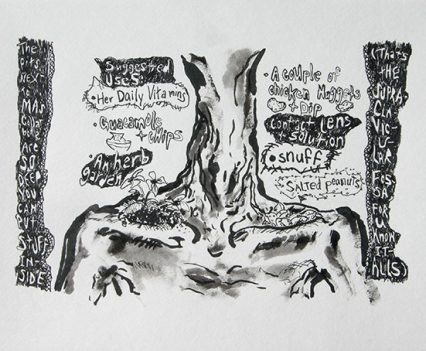 The
pits
NEXT
MAN
ARE
SO
DEEP
YOU
CAN
PUT
STUFF
IN-
SIDE
Suggested
Uses:
Her Daily Vitamins
• Guacamole
+ chips
• An herb
garden
• A couple of
chicken Nuggets
+ Dip
Contact Lens
Solution
• snuff
• SALTED peanuts
(THATS
THE
SUPRA
CLA
VIC
U
LAR
FOS
SA
FOR
YOU
KNOW
IT-
ALLS)